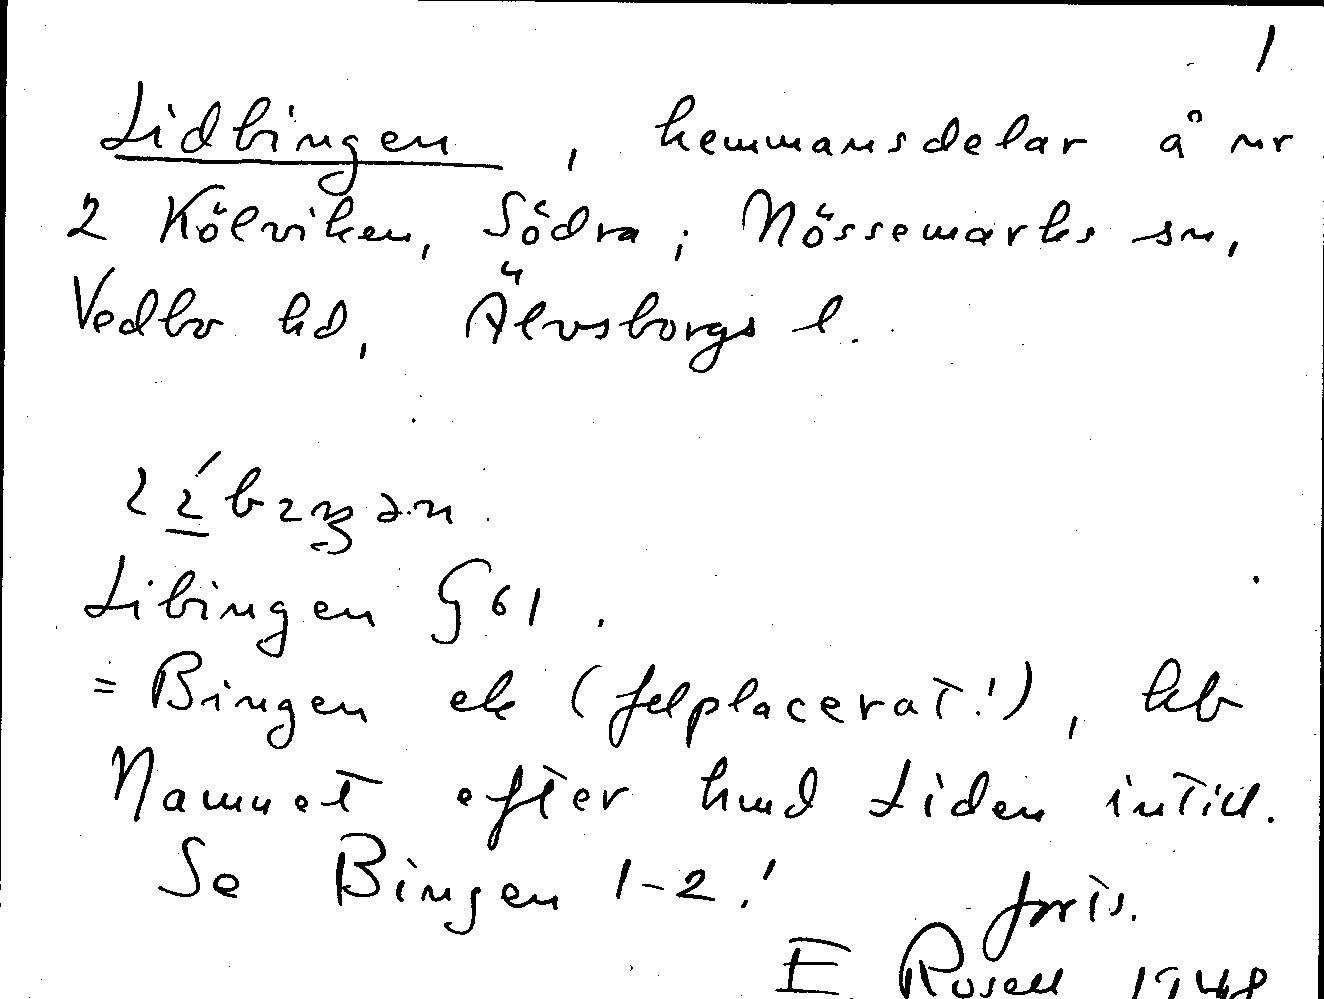 1
Lidbingen, hemmansdelar å nr
2 Kölviken, Södra; Nössemarks sn,
Vedbo hd, Älvsborgs l.
Libingen G 61.
= Bingen ek (felplacerat!), hb
Namnet efter hmd Liden intill.
Se Bingen 1-2!
forts.
E Rosell 1948